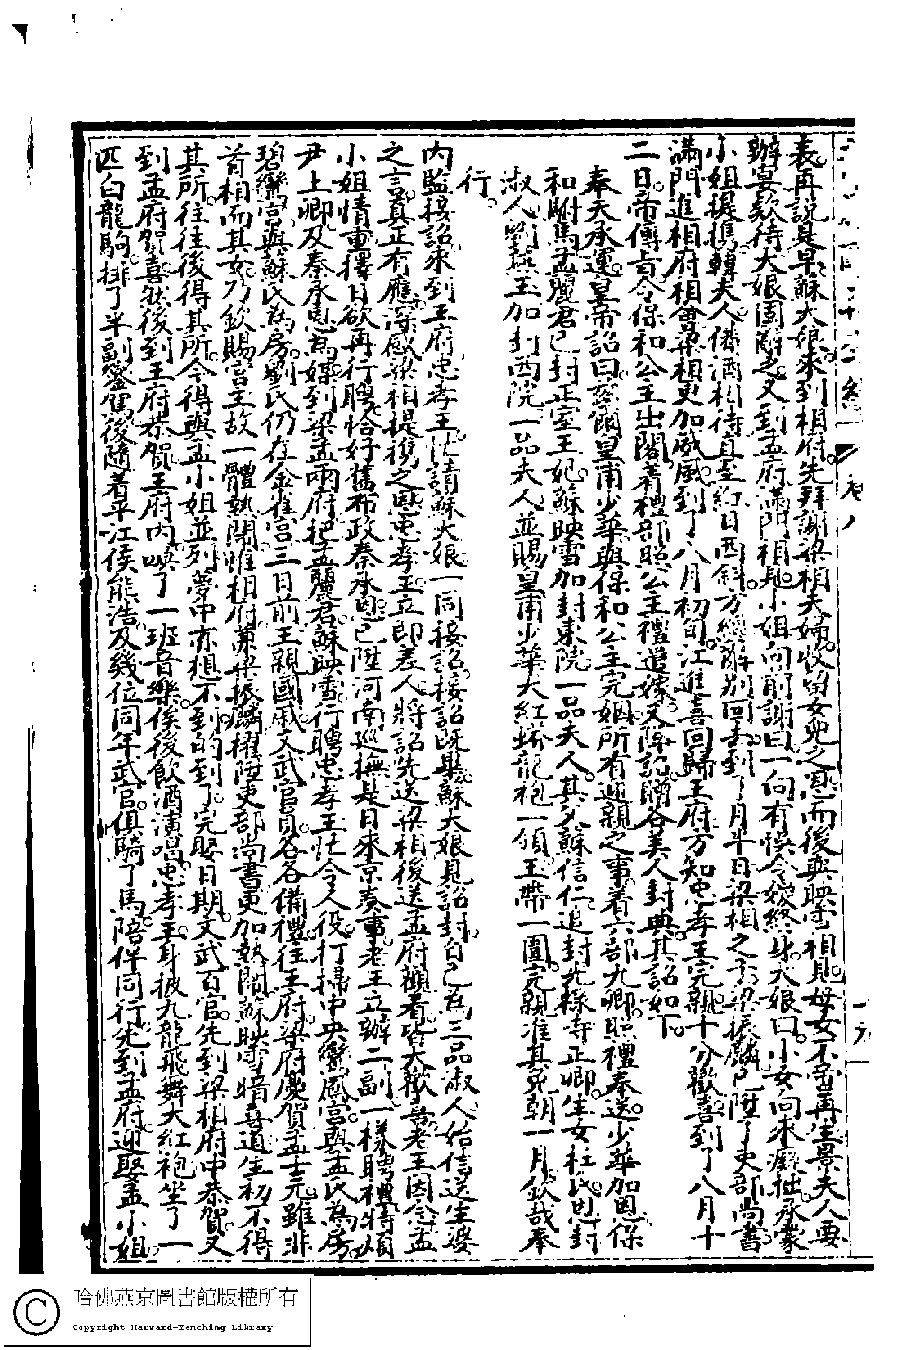 表再說是早蘇大娘來到相府先拜謝梁相夫婦收留女兒之恩而後與映雪相見母女不啻再生景夫人要
辦宴款待大娘固辭之又到孟府滿門相見小姐向前謝曰一向有悞令嫒終身大娘曰小女向來癡拙承蒙
小姐提携韓夫人備酒相待直至紅日西斜方纔辭別回去到了月半日梁相之子梁振麟又陞了吏部尚書
滿門進相府相賀梁相更加威風到了八月初旬江進喜回歸王府方知忠孝王完親十分歡喜到了八月十
二日帝傳旨令保和公主出閣着禮部照公主禮遣嫁又降詔賜各美人封典其詔如下
奉天承運皇帝詔曰茲爾皇甫少華與保和公主完姻所有迎親之事着六部九卿照禮奉送少華加恩保
和駙馬孟麗君已封正室王妃蘇映雪加封東院一品夫人其父蘇信仁追封光祿寺正卿生女杜氏恩封
淑人劉燕玉加封西院一品夫人並賜皇甫少華大紅蟒龍袍一領玉帶一圍完親准其免朝一月欽哉奉
行
內監接詔來到王府忠孝王忙請蘇大娘一同接詔接詔既畢蘇大娘見詔封自己為三品淑人始信送生婆
之言真正有應深感梁相提携之恩忠孝王立即差人將詔先送梁相後送孟府觀看皆大歡喜老王因念孟
小姐情重擇日欲再行聘恰好舊布政秦承恩已陞河南巡撫是日來京奏事老王立辦二副一樣聘禮特煩
尹上卿及秦承恩為媒到梁孟兩府把孟麗君蘇映雪行聘忠孝王忙令人役打掃中央鸞鳳宮與孟氏為房
碧鸞宮與蘇氏為房劉氏仍在金雀宮三日前王親國戚文武官員各各備禮往王府梁府慶賀孟士元雖非
首相而其女乃欽賜宮主故一體熱鬧惟相府兼梁振麟擢陞吏部尚書更加熱鬧蘇映雪暗喜道生初不得
其所往往後得其所今得與孟小姐並列夢中亦想不到的到了完娶日期文武百官先到梁相府中恭賀又
到孟府賀喜然後到王府恭賀王府內喚了一班音樂俟後飲酒演唱忠孝王身披九龍飛舞大紅袍坐了一
匹白龍駒排了半副鑾駕後隨着平江侯熊浩及幾位同年武官俱騎了馬陪伴同行先到孟府迎娶孟小姐
哈佛燕京圖書館版權所有
Copyright Harvard-Yenching Library